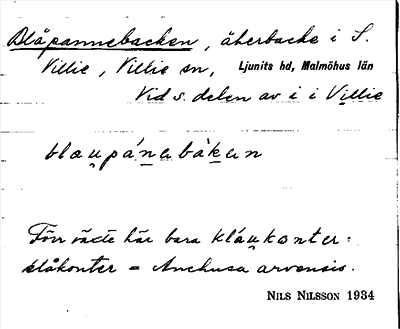 Blåpannebacken, åkerbacke i S.
Villie, Villie sn, Ljunits hd, Malmöhus län
Vid s. delen av i i Villie
blau̯pánabàkan
Förr växte här bara kláu̯kontər:
klåkonter = Anchusa arvensis.
NILS NILSSON 1934